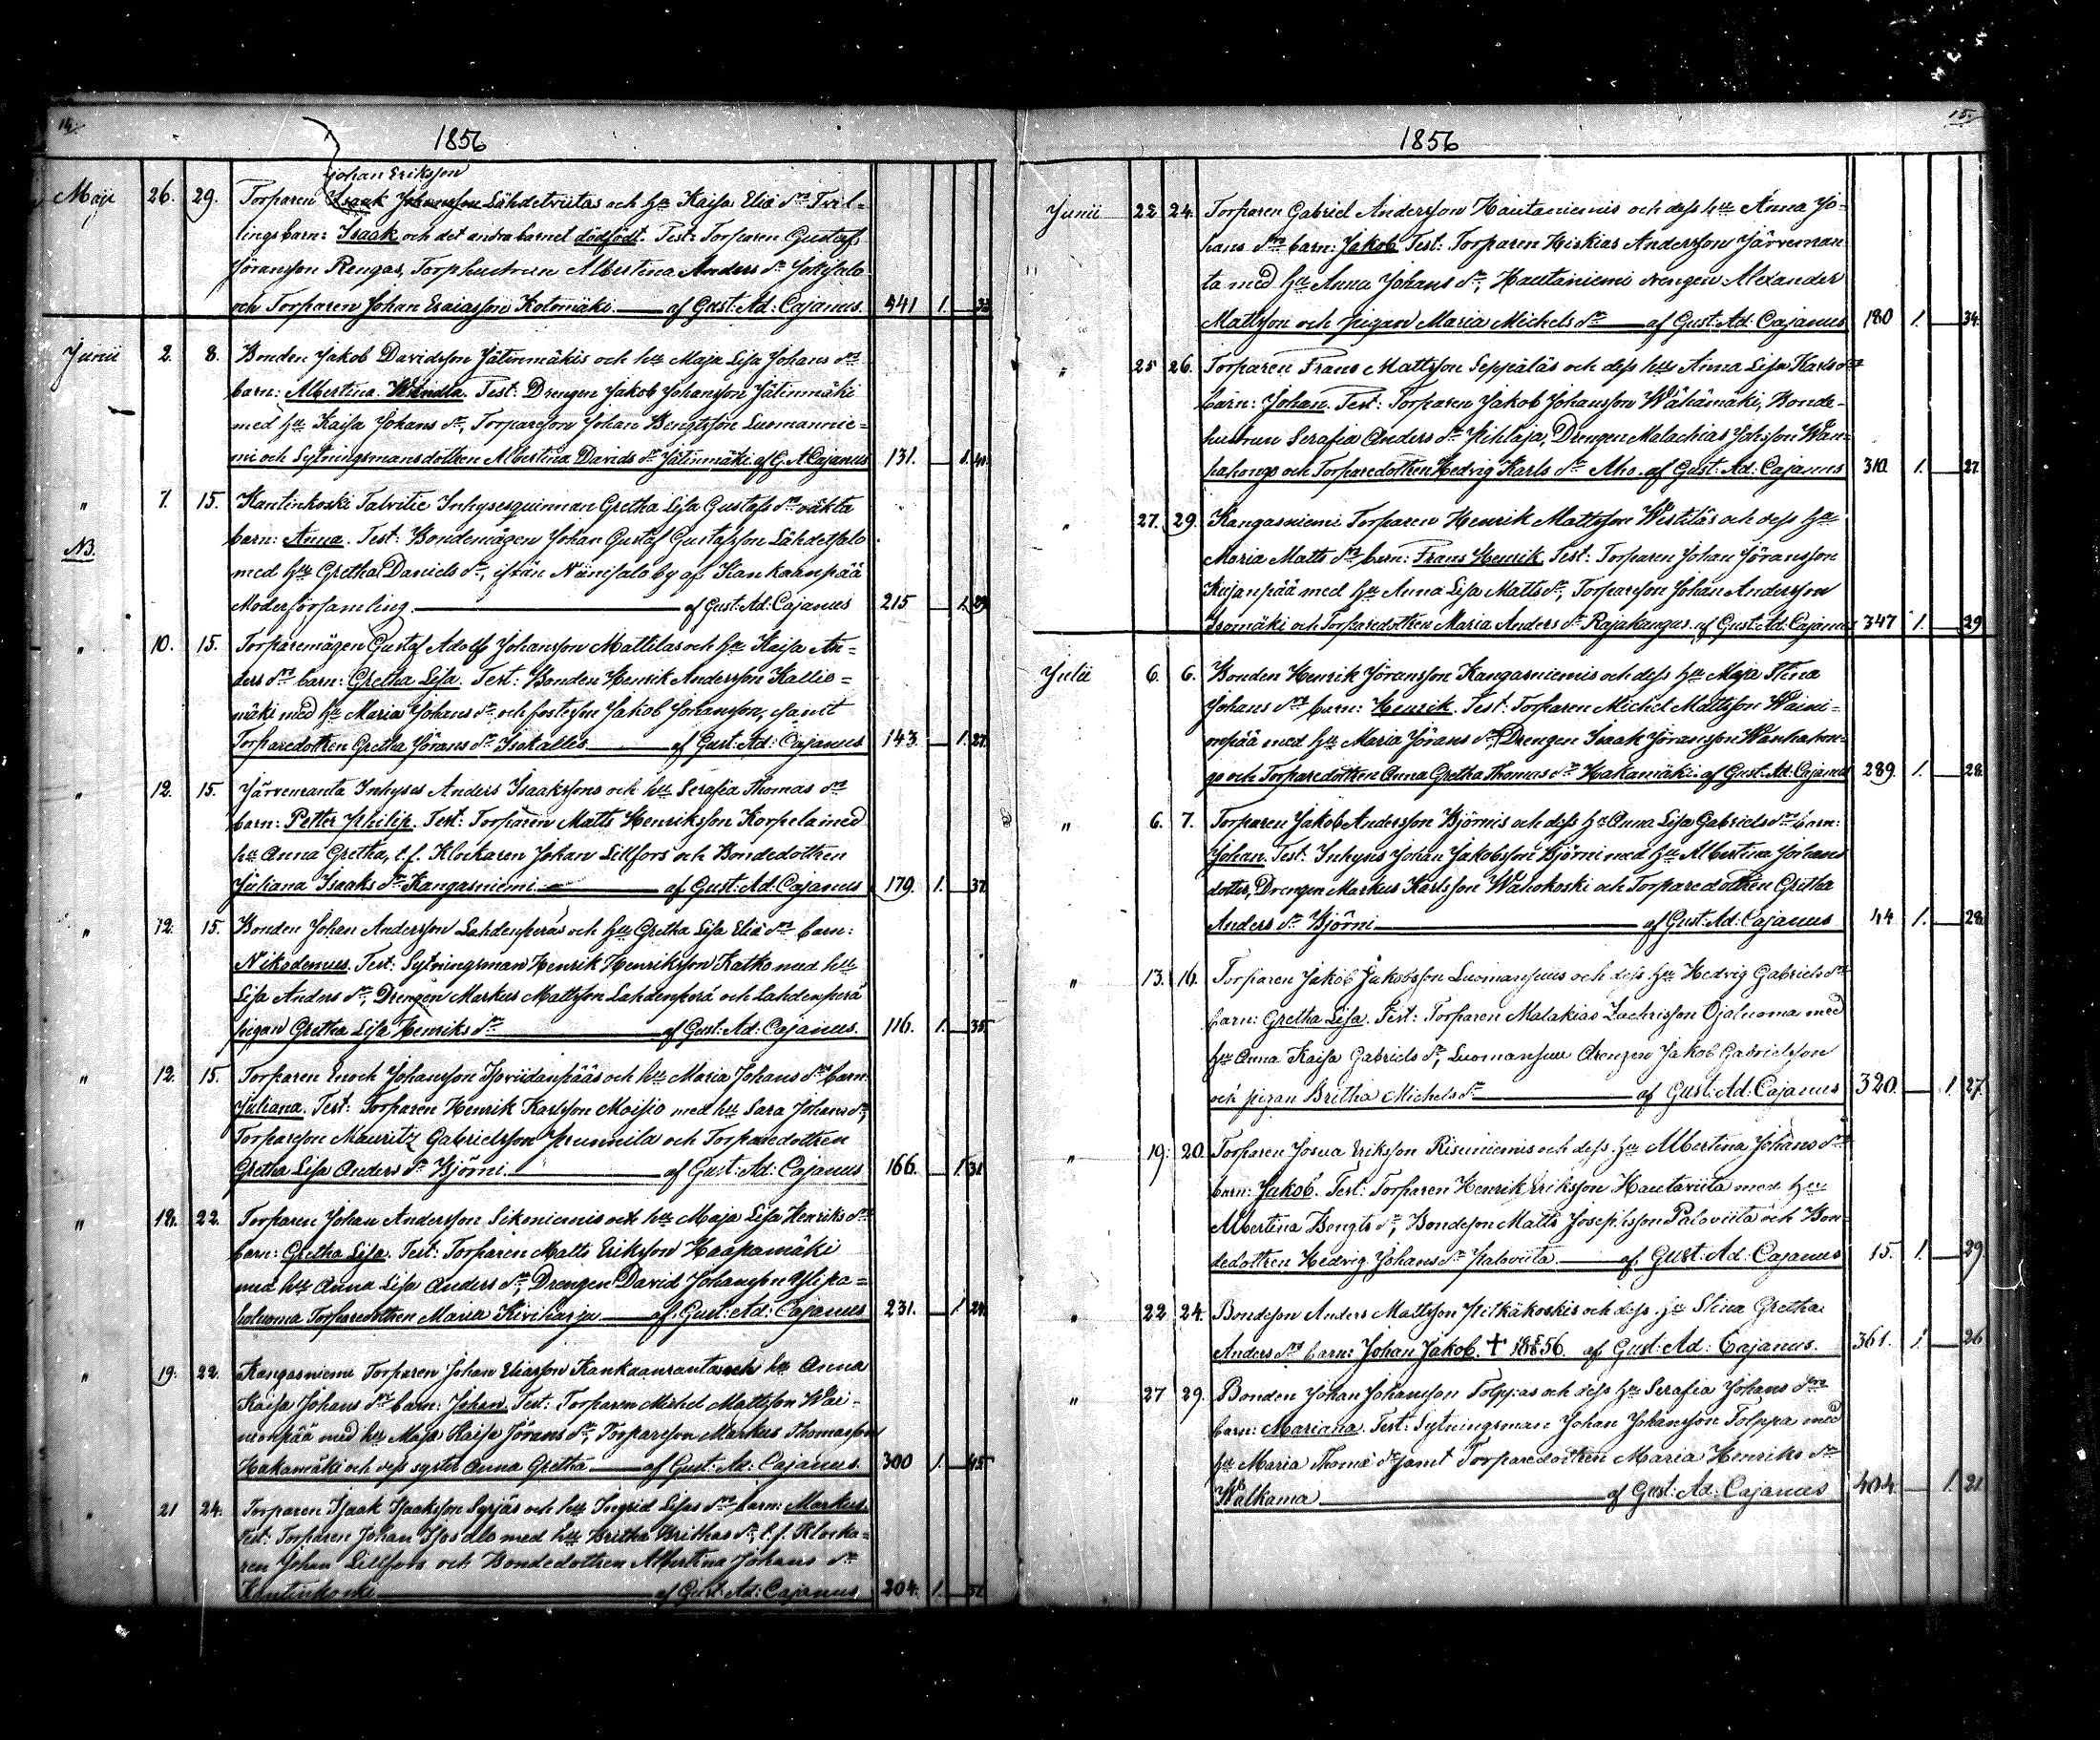 14.
1856
Johan Eriksson
Maji 26. 29. Torparen Isaak Johansson Lähdeviitas och hu Kaisa Eliæ dr Tvil-
lings barn: Isaak och det andra barnet dödfödt. Test: Torparen Gustaf
Jöransson Rengas, Torphustrun Albertina Anders dr Jokisalo
och Torparen Johan Esaiasson Kotomäki af Gust: Ad: Cajanus. 441 1. 33
Junii 2. 8. Bonden Jakob Davidsson Jätinmäkis och hu Maja Lisa Johans dr
barn: Albertina Wendla. Test: Drengen Jakob Johansson Jätinmäki
med hu Kaisa Johans dr, Torpareson Johan Bengtsson Luomannie-
mi och Sytningsmansdottren Albertina Davids dr Jätinmäki af G. A Cajanus 131. 1. 41.
" 7. 15. Kantinkoski Talvitie Inhysesquinnan Gretha Lisa Gustafs dr oäkta
NB. barn: Anna. Test: Bondemågen Johan Gustaf Gustafsson Lähdesalo
med hu Gretha Daniels dr, ifrån Niinisalo by af Kankaanpää
Moderförsamling af Gust: Ad: Cajanus 215 1. 29
" 10. 15. Torparemågen Gustaf Adolf Johansson Mattilas och hu Kaisa An-
ders dr barn: Gretha Lisa. Test: Bonden Henrik Andersson Kallio-
mäki med hu Maria Johans dr och fosterson Jakob Johansson, samt
Torparedottren Gretha Jörans dr Isokallio af Gust: Ad: Cajanus 143. 1. 27.
" 12. 15. Järvenranta Inhyses Anders Isaakssons och hu Serafia Thomas dr
barn: Petter Philip. Test: Torparen Matts Henriksson Korpela med
hu Anna Gretha, t.f. Klockaren Johan Lillfors och Bondedottren
Juliana Isaaks dr Kangasniemi af Gust: Ad: Cajanus 179. 1. 37.
" 12. 15. Bonden Johan Andersson Lahdenperäs och hu Gretha Lisa Eliæ dr barn:
Nikodemus. Test: Sytningsman Henrik Henriksson Katko med hu
Lisa Anders dr, Drengen Markus Mattsson Lahdenperä och Lahdenperä
pigan Gretha Lisa Henriks dr af Gust: Ad: Cajanus. 116. 1. 35.
" 12. 15. Torparen Enoch Johansson Hoviidanpääs och hu Maria Johans dr barn:
Juliana. Test: Torparen Henrik Karlsson Moisio med hu Sara Johans dr,
Torpareson Mauritz Gabrielsson Prunnila och Torparedottren
Gretha Lisa Anders dr Björni af Gust: Ad: Cajanus 166. 1. 31.
" 18. 22. Torparen Johan Andersson Sikoniemis och hu Maja Lisa Henriks dr
barn: Gretha Lisa. Test: Torparen Matts Eriksson Haapamäki
med hu Anna Lisa Anders dr, Drengen David Johansson Ylipa-
loluoma Torparedottren Maria Kiviharju af Gust: Ad: Cajanus 231. 1. 24.
" 19. 22. Kangasniemi Torparen Johan Eliasson Kankaanranta och hu Anna
Kaisa Johans dr barn: Johan. Test: Torparen Michel Mattsson Wäi-
nionpää med hu Maja Kaisa Jörans dr, Torpareson Markus Thomasson
Hakamäki och dess syster Anna Gretha af Gust: Ad: Cajanus. 300 1. 45.
" 21 24. Torparen Isaak Isaaksson Syrjäs och hu Ingrid Lisas dr barn: Markus.
Test: Torparen Johan Isosalo med hu Britha Brithas dr, t.f. Klocka-
ren Johan Lillfors och Bondedottren Albertina Johans dr
Kantinkoski af Gust: Ad: Cajanus. 204. 1.
15.
1856
Junii 22 24. Torparen Gabriel Andersson Hautaniemis och dess hu Anna Jo-
hans dr barn: Jakob. Test: Torparen Hiskias Andersson Järvenran-
ta med hu Anna Johans dr, Hautaniemi drengen Alexander
Mattsson och pigan Maria Michels dr af Gust: Ad: Cajanus 180 1. 34.
" 25 26. Torparen Frans Mattsson Seppäläs och dess hu Anna Lisa Karls dr
barn: Johan. Test: Torparen Jakob Johansson Wähämäki, Bonde-
hustrun Serafia Anders dr Pihlaja, Drengen Malachias Johsson Wan-
hahongo och Torparedottren Hedvig Karls dr Aho. af Gust: Ad: Cajanus 310. 1. 27.
" 27. 29. Kangasniemi Torparen Henrik Mattsson Westiläs och dess hu
Maria Matts dr barn: Frans Henrik. Test: Torparen Johan Jöransson
Kujanpää med hu Anna Lisa Matts dr, Torpareson Johan Andersson
Isomäki och Torparedottren Maria Anders dr Rajakangas. af Gust: Ad: Cajanus 347 1. 29
Julii 6. 6. Bonden Henrik Jöransson Kangasniemis och dess hu Maja Stina
Johans dr barn: Henrik. Test: Torparen Michel Mattsson Wäini-
onpää med hu Maria Jörans dr, Drengen Isaak Jöransson Wanhahon-
go och Torparedottren Anna Gretha Thomas dr Hakamäki af Gust: Ad: Cajanus 289. 1. 28.
" 6. 7. Torparen Jakob Andersson Björnis och dess hu Anna Lisa Gabriels dr barn:
Johan. Test: Inhyses Johan Jakobsson Björni med hu Albertina Johans
dotter, Drengen Markus Karlsson Wahokoski och Torparedottren Gretha
Anders dr Björni af Gust: Ad: Cajanus 44 1. 28.
" 13. 16. Torparen Jakob Jakobsson Luomansuus och dess hu Hedvig Gabriels dr
barn: Gretha Lisa. Test: Torparen Malakias Zachrisson Ojaluoma med
hu Anna Kaisa Gabriels dr, Luomansuu drengen Jakob Gabrielsson
och pigan Britha Michels dr af Gust: Ad: Cajanus 320. 1 27.
" 19. 20. Torparen Josua Eriksson Risuniemis och dess hu Albertina Johans dr
barn: Jakob. Test: Torparen Henrik Eriksson Hautaviita med hu
Albertina Bengts dr, Bondeson Matts Josephsson Paloviita och Bon-
dedottren Hedvig Johans dr Paloviita af Gust: Ad: Cajanus 15. 1. 29.
" 22 24. Bondeson Anders Mattsson Pitkäkoskis och dess hu Stina Gretha
Anders dr barn: Johan Jakob. † 18 56. af Gust: Ad: Cajanus. 361. 1 26
" 27 29. Bonden Johan Johansson Tolppas och dess hu Serafia Johans dr
barn: Mariana. Test: Sytningsman Johan Johansson Tolppa med
hu Maria Thomæ dr samt Torparedottren Maria Henriks dr
Walkama af Gust: Ad: Cajanus 404. 1. 21